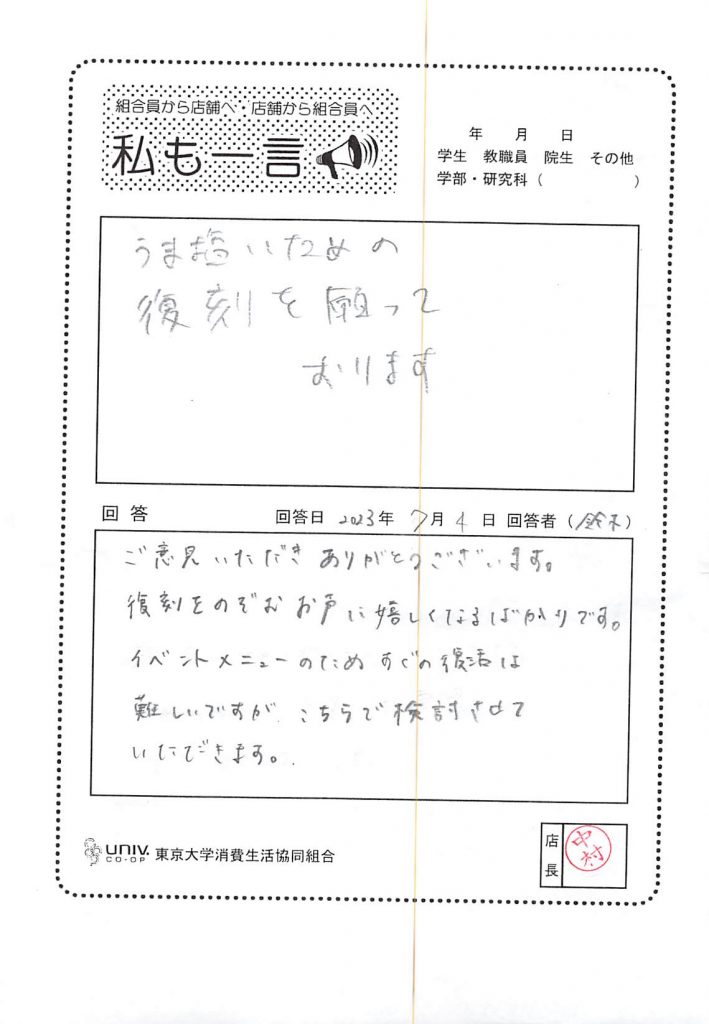 組合員から店舗へ・店舗から組合員へ
私も一言
年 月 日
学生 教職員 院生 その他
学部・研究科（ ）
うま塩いための
復刻を願って
おります
回答 回答日 2023年 7月 4日 回答者（鈴木）
ご意見いただきありがとうございます。
復刻をのぞむお声に嬉しくなるばかりです。
イベントメニューのためすぐの復活は
難しいですが、こちらで検討させて
いただきます。
UNIV. CO-OP 東京大学消費生活協同組合
店長
中村